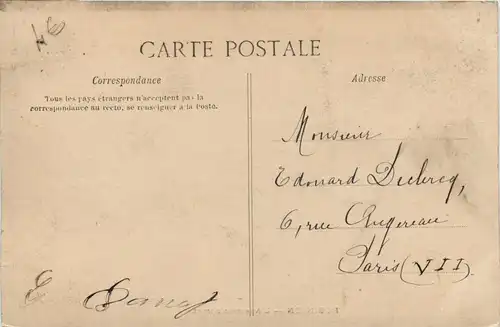 CARTE POSTALE
Correspondance
Tous les pays étrangers n'acceptent pas la
correspondance au recto, se renseigner à la Poste.
Adresse
Monsieur
Edouard Declercq,
6, rue Augereau
Paris (VII)